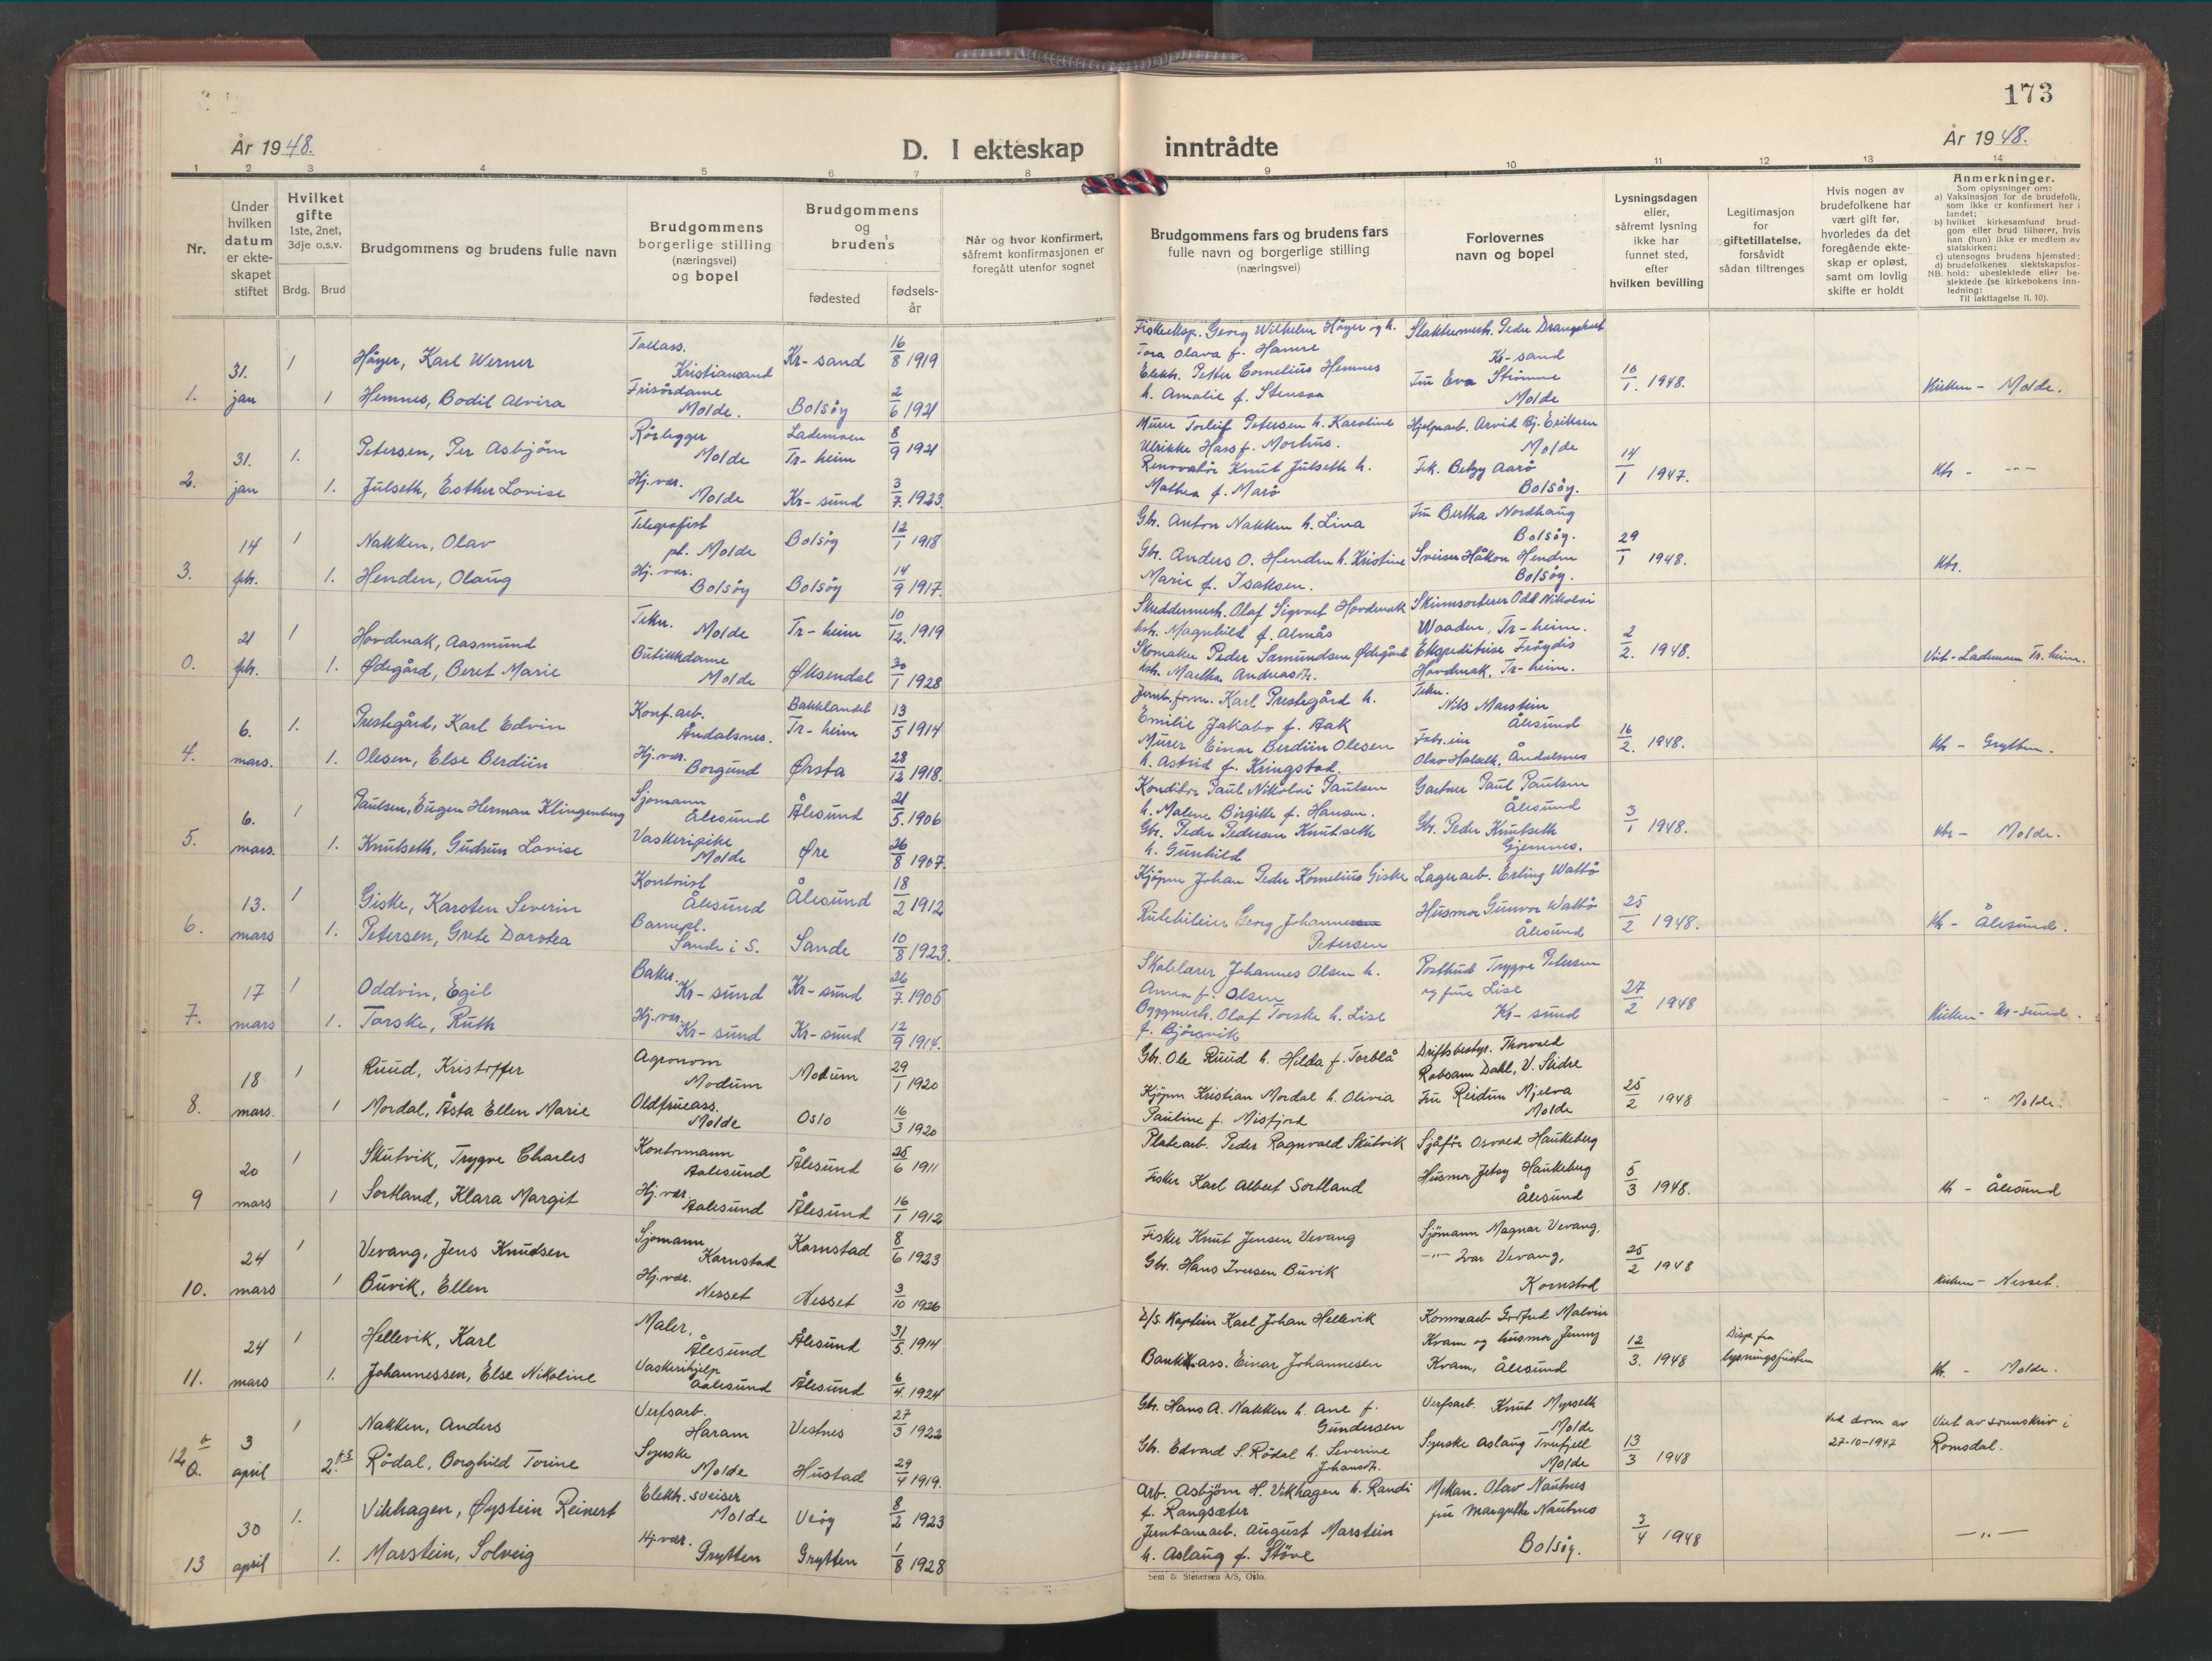 173
År 1948.
D. I ekteskap inntrådte
År 1948.
1 2 3 4 5 6 7 8 9 10 11 12 13 14
Nr.
Under hvilken datum er ekte-skapet stiftet
Hvilket gifte 1ste, 2net, 3dje o.s.v.
Brdg. Brud
Brudgommens og brudens fulle navn
Brudgommens borgerlige stilling (næringsvei) og bopel
Brudgommens og brudens
fødested
fødsels-år
Når og hvor konfirmert, såfremt konfirmasjonen er foregått utenfor sognet
Brudgommens fars og brudens fars fulle navn og borgerlige stilling (næringsvei)
Forlovernes navn og bopel
Lysningsdagen eller, såfremt lysning ikke har funnet sted, efter hvilken bevilling
Legitimasjon for giftetillatelse, forsåvidt sådan tiltrenges
Hvis nogen av brudefolkene har vært gift før, hvorledes da det foregående ekte-skap er opløst, samt om lovlig skifte er holdt
Anmerkninger.
Som oplysninger om:
a) Vaksinasjon for de brudefolk, som ikke er konfirmert her i landet;
b) hvilket kirkesamfund brud-gom eller brud tilhører, hvis han (hun) ikke er medlem av statskirken;
c) utensogns brudens hjemsted;
d) brudefolkenes slektskapsfor-hold: ubeslektede eller be-slektede (se kirkebokens inn-ledning:
NB.
Til iakttagelse II. 10).
1. 31. jan
1 Håyer, Karl Werner Tollass. Kristiansand Kr-sand 16/8 1919
1 Hemnes, Bodil Alvira Frisørdame Molde. Bolsøy 2/6 1921
Georg Wilhelm Håyer og h. Tora Olava f. Hamre
Elektr. Petter Cornelius Hemnes h. Amalie f. Stensaa
Slaktermest. Peder Drangsholt Kr-sand
Fru Eva Strømme Molde
1948. Kirken - Molde.
2. 31. jan
1. Petersen, Per Asbjørn Rørlegger Molde Lademoen Tr-heim 8/9 1921
1. Julseth, Esther Lovise Hj. vær. Molde Kr-sund 3/7 1923.
Murer Torleif Petersen h. Karoline Ulrikke Hass f. Morhus.
Renovatør Knut Julseth h. Mathea f. Marø
Hjelpearb. Arvid Bj. Eriksen Molde
Frk. Betzy Aarø Bolsøy.
14/1 1947.
3. 14 feb.
1 Nakken, Olav Telegrafist pl. Molde Bolsøy 12/1 1918
1. Henden, Olaug Hj. vær. Bolsøy Bolsøy 14/9 1917.
Gbr. Anton Nakken h. Lina
Gbr. Anders O. Henden h. Kristine Marie f. Isaksen.
Fru Bertha Nordhaug Bolsøy.
Sveiser Håkon Henden Bolsøy.
29/1 1948.
0. 21 feb.
1 Hovdenak, Aasmund Tekn. Molde Tr-heim 10/12 1919
1. Ødegård, Beret Marie Butikkdame Molde Øksendal 20/1 1928
Skreddermest. Olaf Sigvart Hovdenak h. Magnhild f. Almås
Skomaker Peder Samundsen Ødegård h. Marthe Andreasdt.
Skinnsorterer Odd Nikolai Waaden, Tr-heim.
Ekspeditrise Frøydis Hovdenak, Tr-heim.
2/2. 1948. Viet - Lademoen Tr.heim.
4. 6. mars.
1. Prestegård, Karl Edvin Konf.arb. Åndalsnes. Bakklandet Tr-heim 13/5 1914
1. Olesen, Else Berdiin Hj.vær. Borgund Ørsta 28/12 1918.
Jernb.form. Karl Prestegård h. Emilie Jakoba f. Aak
Murer Einar Berdiin Olesen h. Astrid f. Kringstad.
Tekn. Nils Marstein Ålesund
Fabr.eier Olav Hatseth, Åndalsnes
16/2. 1948. Grytten.
5. 6. mars.
1 Paulsen, Eugen Herman Klingenberg Sjømann Ålesund Ålesund 21/5. 1906
1. Knutseth, Gudrun Lovise Vaskeripike Molde Øre 26/8 1907.
Konditor Paul Nikolai Paulsen h. Malene Birgitte f. Hansen.
Gbr. Peder Pedersen Knutseth h. Gunhild
Gartner Paul Paulsen Ålesund
Gbr. Peder Knutseth Gjemnes.
3/1 1948. Molde.
6. 13. mars
1 Giske, Karsten Severin Kontorist Ålesund Ålesund 18/2 1912
1. Petersen, Grete Dorotea Barnepl. Sande i S. Sande 10/8 1923.
Kjøpm Johan Peder Kornelius Giske
Rutebileier Georg Johannessen Petersen
Lagerarb. Erling Wattø
Husmor Gunvor Wattø Ålesund
25/2 1948. Ålesund.
7. 17 mars
1 Oddvin, Egil Baker. Kr-sund Kr-sund 26/7. 1905
1. Torske, Ruth Hj. vær. Kr-sund Kr-sund 12/9 1914.
Johannes Olsen h. Anna f. Olsen
Byggmest. Olaf Torske h. Lise f. Bjørnvik
Postbud Trygve Petersen og frue Lise Kr-sund
27/2 1948 Kirken - Kr-sund.
8. 18 mars.
1 Ruud, Kristoffer Agronom Modum Modum 29/1 1920
1 Mordal, Åsta Ellen Marie Oldfrueass. Molde Oslo 16/3 1920
Gbr. Ole Ruud h. Hilda f. Torblå
Kjøpm Kristian Mordal h. Olivia Pauline f. Misfjord
Driftsbestyr. Thorvald Robsam Dahl, V. Slidre
Fru Reidun Mjelva Molde
25/2 1948 - " Molde.
9 20 mars
1 Skutvik, Trygve Charles Kontormann Aalesund Ålesund 25/6 1911
1 Sortland, Klara Margit Hj. vær. Aalesund Ålesund 16/1 1912
Platearb. Peder Ragnvald Skutvik
Fisker Karl Albert Sortland
Sjåfør Osvald Haukeberg
Husmor Jetsy Haukeberg Ålesund
5/3 1948. Ålesund
10. 24 mars
1 Vevang, Jens Knudsen Sjømann Kornstad Kornstad 8/6 1923
1 Buvik, Ellen Hj. vær. Nesset Nesset 3/10 1926
Fisker Knut Jensen Vevang
Gbr. Hans Iversen Buvik
Sjømann Magnar Vevang.
-"- Ivar Vevang, Kornstad
25/2 1948 Kirken - Nesset.
11. 24 mars
1 Hellevik, Karl Maler, Ålesund Ålesund 31/5. 1914
1. Johannessen, Else Nikoline Vaskerihjelp Aalesund Ålesund 6/4. 1924
D/S. Kaptein Karl Johan Hellevik
Bankkass. Einar Johannesen
Malvin Kvam og husmor Jenny Kvam, Ålesund
12/3. 1948 Disp. fra lysningsfristen Molde.
12 0. 3 april
1 Nakken, Anders Verfsarb. Haram Vestnes 27/3 1922
2. Rødal, Borghild Torine Syerske Molde Hustad 29/4 1919.
Gbr. Hans A. Nakken h. Ane f. Gundersen
Gbr. Edvard S. Rødal h. Severine Johansdt.
Verfsarb. Knut Myrseth Molde
Syerske Aslaug Molde
13/3 1948 Ved dom av 27-10-1947 Viet av sorenskriv i Romsdal.
13 30 april
1. Vikhagen, Øystein Reinert Elektr. sveiser Molde Veøy 8/2 1923
1. Marstein, Solveig Hj. vær. Grytten Grytten 1/8 1928
Arb. Asbjørn H. Vikhagen h. Randi f. Rangsæter
Jernbanearb. August Marstein h. Aslaug f. Støve
Mekan. Olav Nautnes
fru Margrethe Nautnes Bolsøy.
3/4 1948 -"-
Sem & Stenersen A/S, Oslo.